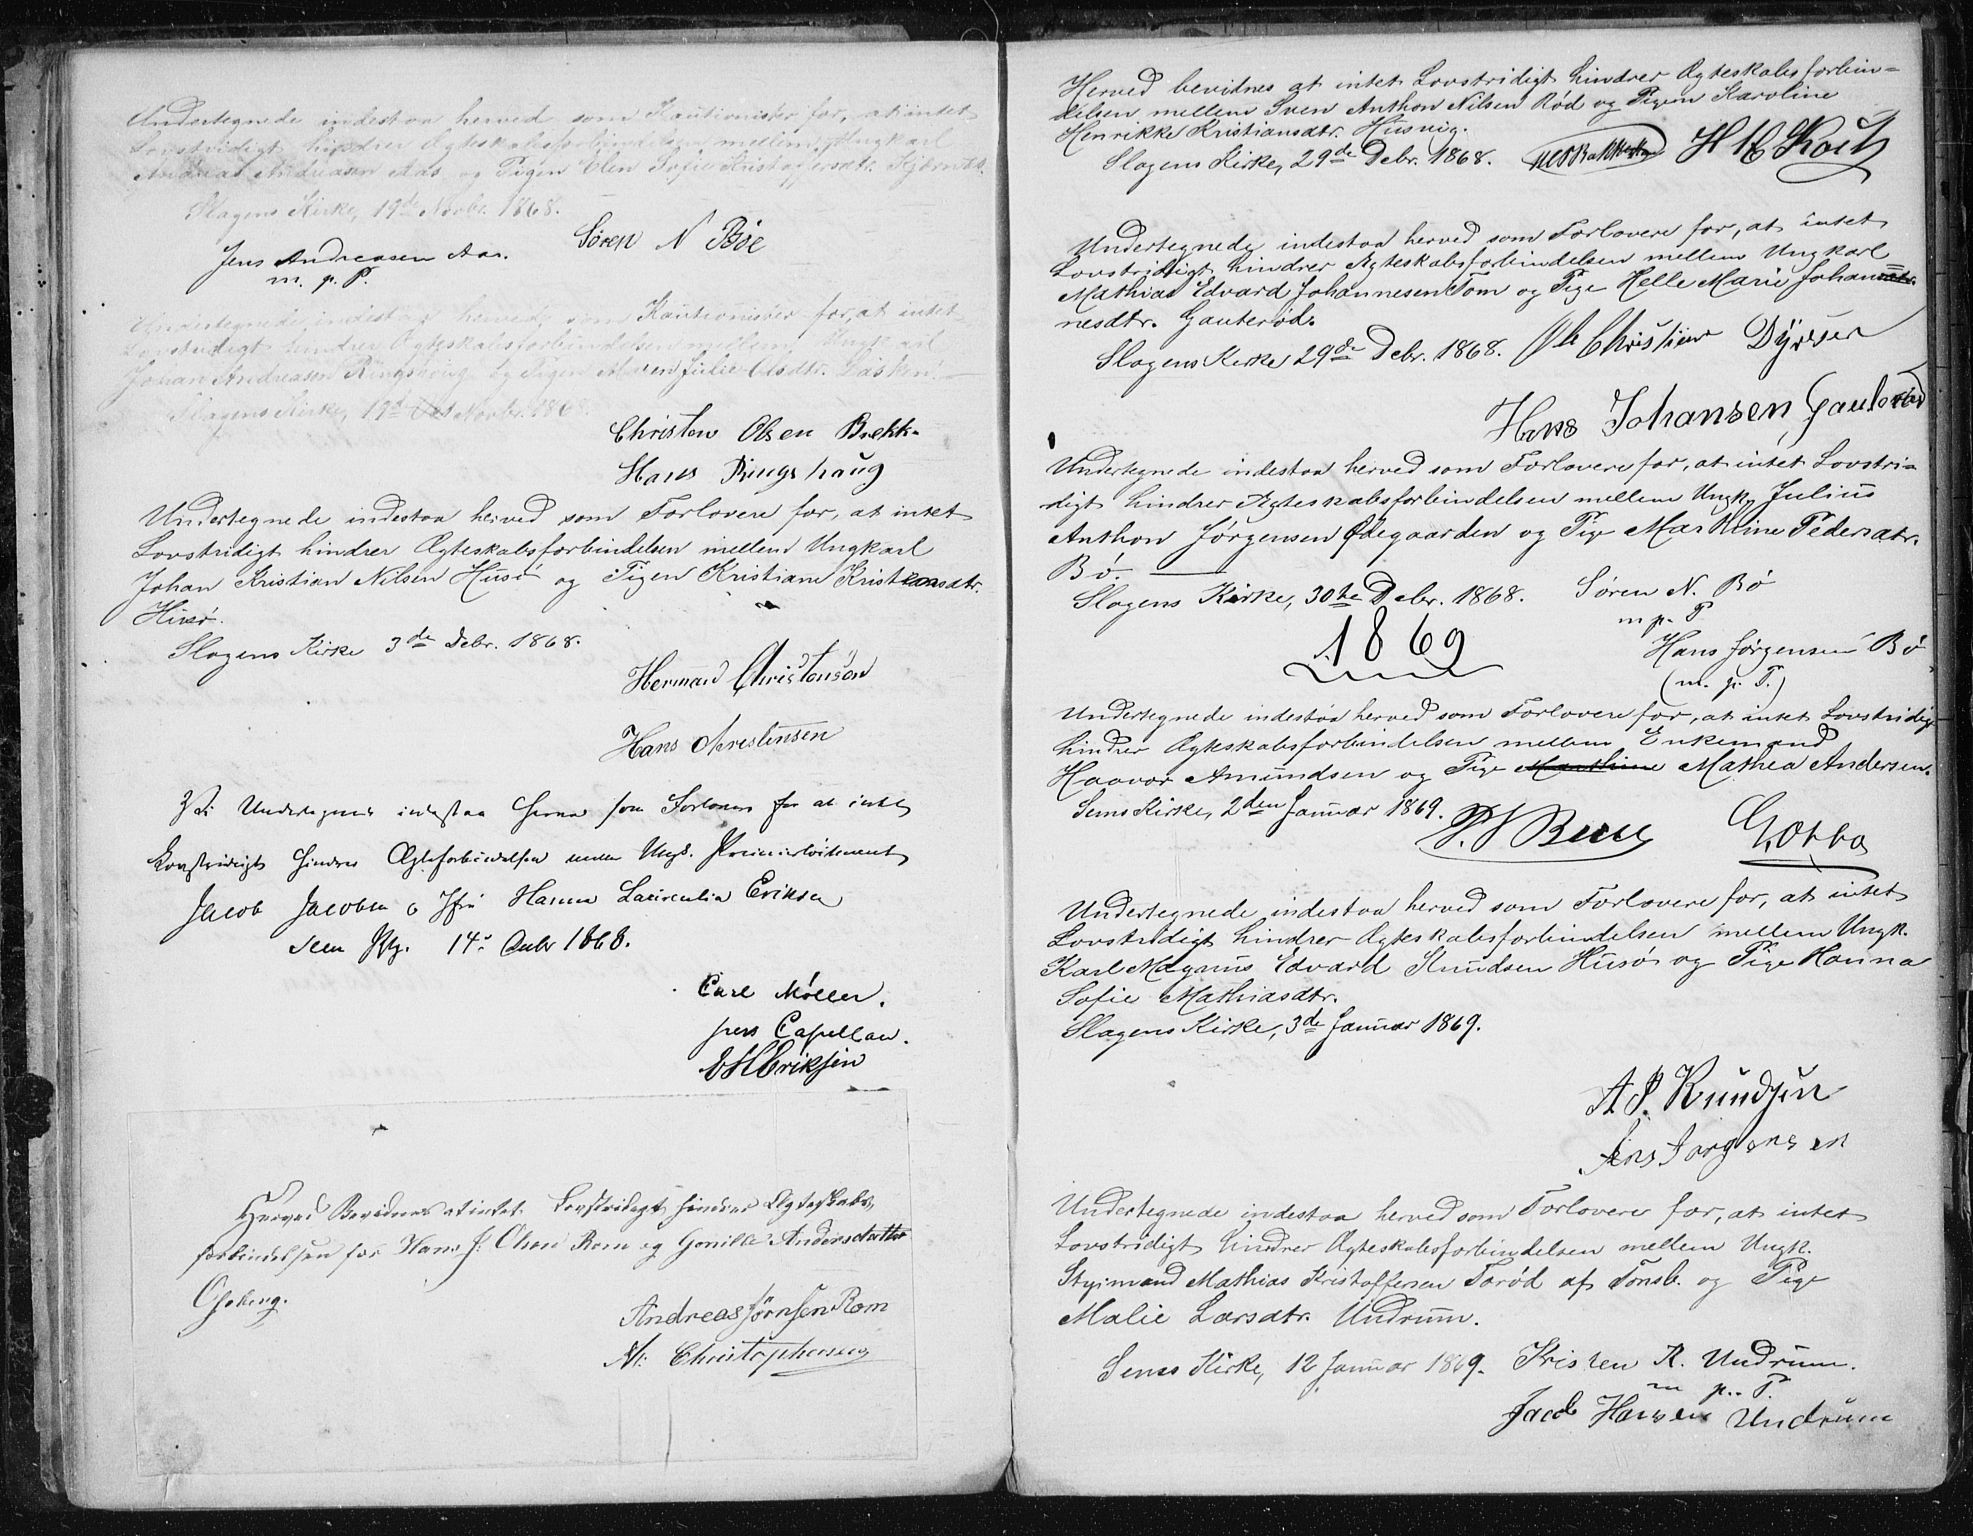 Undertegnede indestaa herved som Kautionister for, at intet
Lovstridigt hindrer Ægteskabsforbindelsen mellem Ungkarl
Andreas Andreasen Aas og Pigen Elen Sofie Kristoffersdtr.
Slagens Kirke, 19de Novbr. 1868.
Søren N Bøe
Jens Andreasen Aas.
m. p. P.
Undertegnede indestaa herved som Kautionister for, at intet
Lovstridigt hindrer Ægteskabsforbindelsen mellem Ungkarl
Johan Andreasen Ringshoug og Pigen Maren Julie Olsdtr.
Slagens Kirke, 19d Novbr. 1868.
Christen Olsen Brekke
Hans Ringshaug
Undertegnede indestaa herved som Forlovere for, at intet
Lovstridigt hindrer Ægteskabsforbindelsen mellem Ungkarl
Johan Kristian Nilsen Husø og Pigen Kristiane Kristiansdtr.
Husø.
Slagens Kirke 3de Debr. 1868.
Herman Christensen
Hans Christensen
Vi Undertegnede indestaa herved som Forlovere for at intet
Lovstridigt hindrer Ægteforbindelsen mellem Ungk. Premierløitenant
Jacob Jacobsen og Jfr. Hanna Laurentia Eriksen
Sem Pg. 14de Decbr 1868.
Carl Møller.
pers Capellan.
Eriksen
Herved Bevidnes at intet Lovstridigt hindrer Ægteskabs
forbindelsen for Hans J. Olsen Rom og Gunild Andersdatter
Oseberg.
Andreas Jørnsen Rom
N: Christophersen
Herved bevidnes at intet Lovstridigt hindrer Ægteskabsforbin=
delsen mellem Sven Anthon Nilsen Rød og Pigen Karoline
Henrikke Kristiansdtr. Husvig.
Slagens Kirke, 29de Debr. 1868.
Undertegnede indestaa herved som Forlovere for, at intet
Lovstridigt hindrer Ægteskabsforbindelsen mellem Ungkarl
Mathias Edvard Johannesen Tom og Pige Helle Marie Johan=
nesdtr. Gauterød.
Slagens Kirke 29de Debr. 1868. Ole Christian Dyrsen
Hans Johansen Gauterød
Undertegnede indestaa herved som Forlovere for, at intet Lovstri=
digt hindrer Ægteskabsforbindelsen mellem Ungk. Julius
Anthon Jørgensen Ødegaarden og Pige Marthine Pedersdtr.
Bø.
Slagens Kirke, 30te Debr. 1868. Søren N. Bø
m. p. P
Hans Jørgensen Bø
(m. p. P.)
1869
Undertegnede indestaa herved som Forlovere for, at intet Lovstridigt
hindrer Ægteskabsforbindelsen mellem Enkemand
Haavor Amundsen og Pige Marthine Mathea Andersen.
Sems Kirke, 2den Januar 1869.
Undertegnede indestaa herved som Forlovere for, at intet
Lovstridigt hindrer Ægteskabsforbindelsen mellem Ungk.
Karl Magnus Edvard Knudsen Husø og Pige Hanna
Sofie Mathiasdtr.
Slagens Kirke, 3de Januar 1869.
A P. Knudsen
Jens Jørgensen
Undertegnede indestaa herved som Forlovere for, at intet
Lovstridigt hindrer Ægteskabsforbindelsen mellem Ungk.
Styrmand Mathias Kristoffersen Torød af Tønsb. og Pige
Malie Larsdtr. Undrum.
Sems Kirke, 12 Januar 1869. Kristen R. Undrum.
m p. P.
Jacob Hansen Undrum